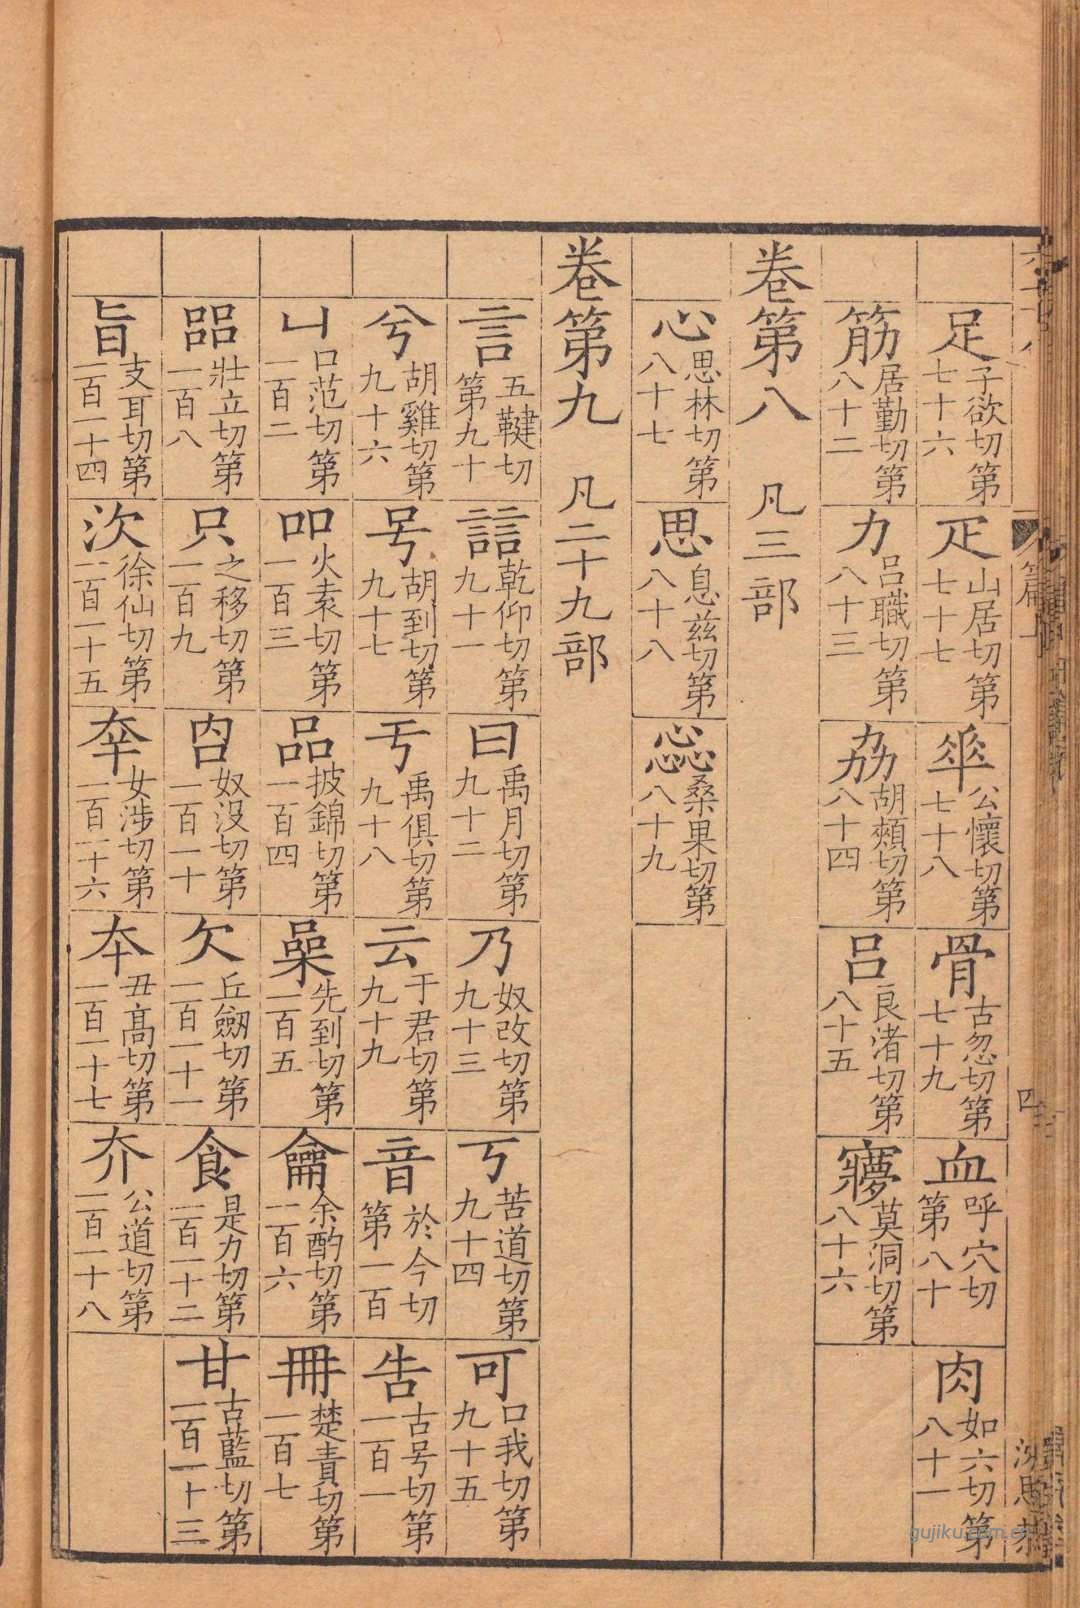 足 子欲切第七十六 疋 山居切第七十七 𠦬 公懷切第七十八 骨 古忽切第七十九 血 呼穴切第八十 肉 如六切第八十一
筋 居勤切第八十二 力 呂職切第八十三 劦 胡頰切第八十四 呂 良渚切第八十五 㝱 莫洞切第八十六
卷第八 凡三部
心 思林切第八十七 思 息茲切第八十八 惢 桑果切第八十九
卷第九 凡二十九部
言 五鞬切第九十 誩 乾仰切第九十一 曰 禹月切第九十二 乃 奴改切第九十三 丂 苦道切第九十四 可 口我切第九十五
兮 胡雞切第九十六 号 胡到切第九十七 亏 禹俱切第九十八 云 于君切第九十九 音 於今切第一百 告 古号切第一百一
凵 口范切第一百二 吅 火袁切第一百三 品 披錦切第一百四 喿 先到切第一百五 龠 余酌切第一百六 冊 楚責切第一百七
㗊 壯立切第一百八 只 之移切第一百九 㕯 奴沒切第一百一十 欠 丘劒切第一百一十一 食 是力切第一百一十二 甘 古藍切第一百一十三
旨 支耳切第一百一十四 㳄 徐仙切第一百一十五 㚔 女涉切第一百一十六 夲 丑高切第一百一十七 夰 公道切第一百一十八
gujiku.com.cn